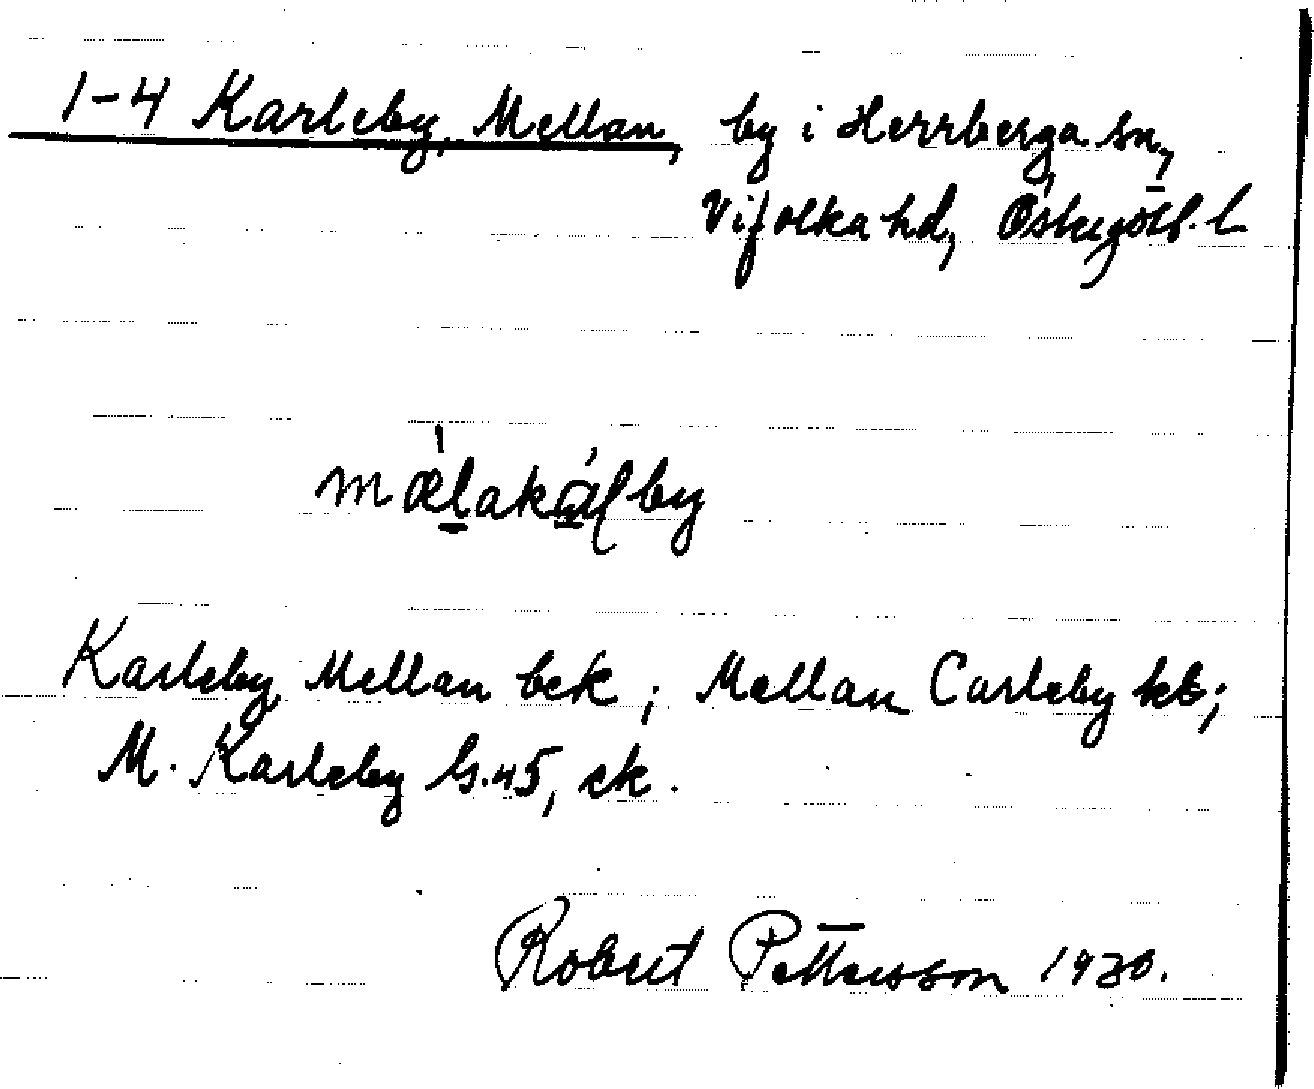 1-4 Karleby, Mellan, by i Herrberga sn,
Vifolka hd, Östergötl. l
mæ̀lakálby
Karleby, Mellan bek; Mellan Carleby kb;
M. Karleby G.45, ek.
Robert Pettersson 1930.